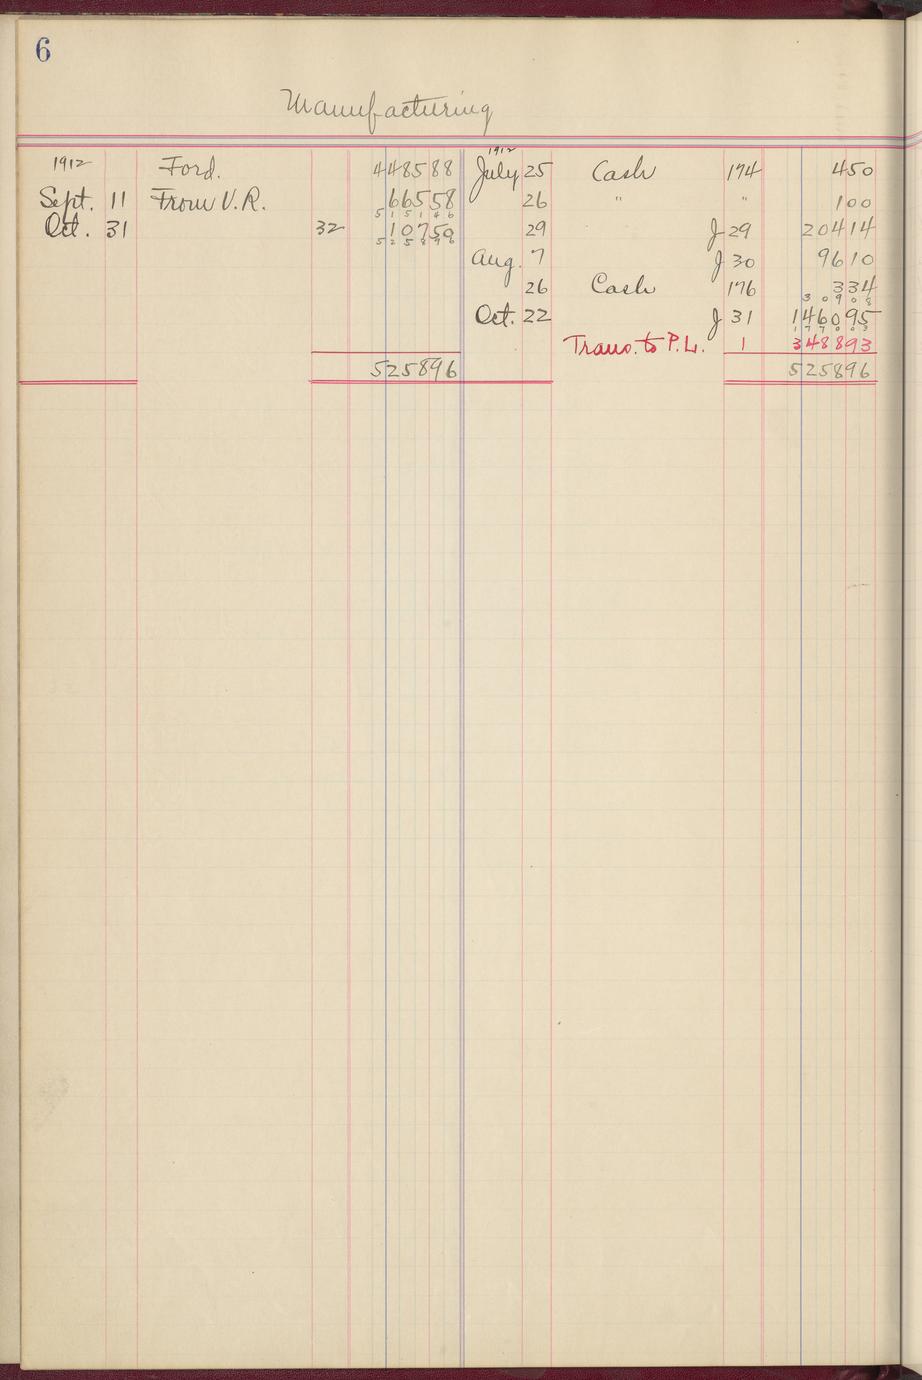 6
Manufacturing
1912 Ford. 448588 1912 July 25 Cash 174 450
Sept. 11 From V.R. 66558 26 " " 100
515146
Oct. 31 32 10750 29 J 29 20414
525896
Aug. 7 J 30 9610
26 Cash 176 334
30908
Oct. 22 J 31 146095
177003
Trans. to P.L. 1 348893
525896 525896